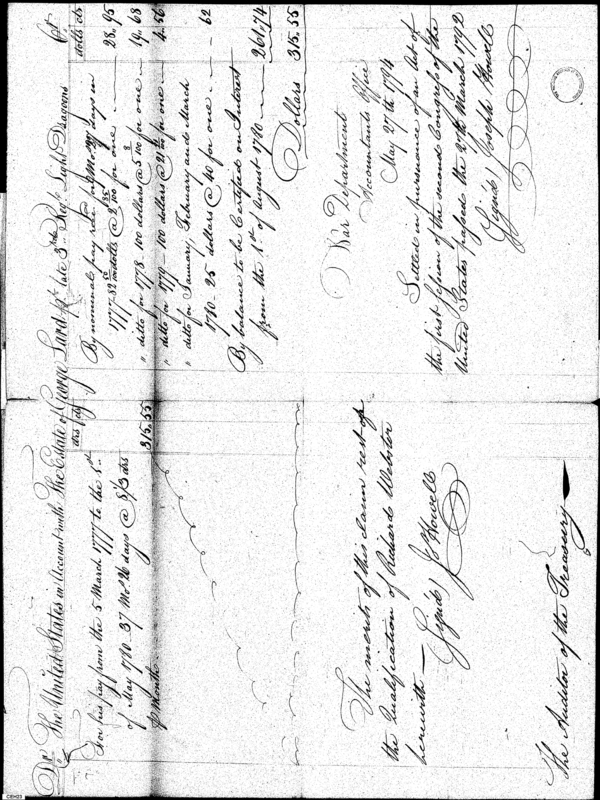 Dr. The United States in Account with The Estate of George Lard pt. late 3rd Regt. Light Dragoons Cr.
dls cts
For his pay from the 5 March 1777 to the 5th
of May 1780. 37 Mos 26 days @ 8 1/3 dls
pr Month 315.55
The merits of this claim rest op
the Qualification of Richard Webster
herewith —
Signd, J Howell
The Auditor of the Treasury
dolls cts
By nominal pay reced for days in
1777. 82 dolls @ for one 28.95
" ditto for 1778. 100 dollars @ for one 14.68
" ditto for 1779 - 100 dollars @ for one 4.56
" ditto for January, February and March
1780 - 25 dollars @ 40 for one - 62
By balance to be Certified on Interest
from the 1st of August 1780 261.74
Dollars 315.55
War Department
Accountants Office
May 27th 1794
Settled in pursuance of an Act of
the first session of the second Congress of the
United States passed the 27th March 1792
Signd, Joseph Howell